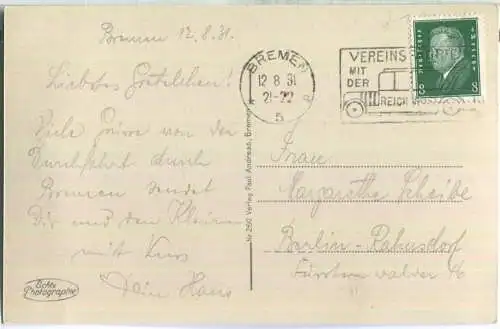 Bremen 12.8.31.
Liebstes Gretelchen!
Viele Grüsse von der
Durchfahrt durch
Bremen sendet
Dir und den Kleinen
mit Kuss
Dein Hans
Echte
Photographie
Nr 290 Verlag Paul Andreas, Bremen
BREMEN
12 8 31
21-22
5
VEREINS
MIT
DER
REICHSPOST
Deutsches Reich
8 8
Frau
Margarethe Scheibe
Berlin-Rahnsdorf
Fürstenwalder